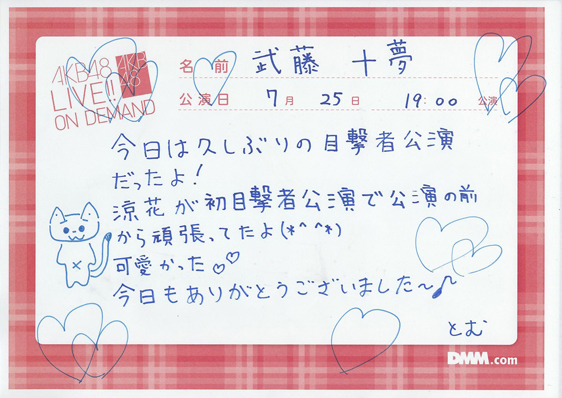 AKB48
LIVE!!
ON DEMAND
AKB
48
名前 武藤 十夢
公演日 7月 25日 19:00 公演
今日は久しぶりの目撃者公演
だったよ!
涼花が初目撃者公演で公演の前
から頑張ってたよ(*^^*)
可愛かった♡♡
今日もありがとうございました〜♪
とむ
DMM.com